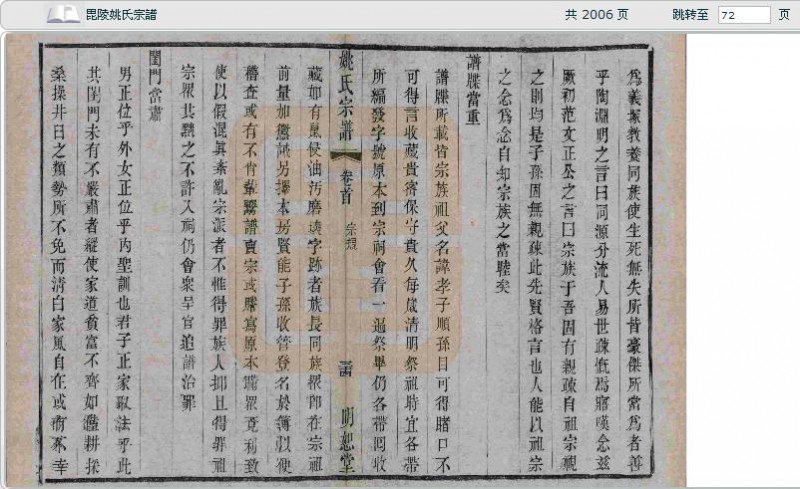 毘陵姚氏宗譜
共 2006 页
跳转至 72 页
爲義塚教養同族使生死無失所皆豪傑所當爲者善
乎陶淵明之言曰同源分流人易世疎慨焉寤嘆念兹
厥初范文正公之言曰宗族于吾固有親疎自祖宗視
之則均是子孫固無親疎此先賢格言也人能以祖宗
之念爲念自知宗族之當睦矣
譜牒當重
譜牒所載皆宗族祖父名諱孝子順孫目可得睹口不
可得言收藏貴密保守貴久每歲清明祭祖時宜各帶
所編發字號原本到宗祠會看一遍祭畢仍各帶囘收
姚氏宗譜
卷首
宗規
明恕堂
藏如有鼠侵油汚磨壞字跡者族長同族衆卽在宗祖
前量加懲誡另擇本房賢能子孫收管登名於簿以便
稽查或有不肖輩鬻譜賣宗或謄寫原本瞞衆覓利致
使以假混眞紊亂宗派者不惟得罪族人抑且得罪祖
宗衆共黜之不許入祠仍會衆呈官追譜治罪
閨門當肅
男正位乎外女正位乎內聖訓也君子正家取法乎此
其閨門未有不嚴肅者縱使家道貧富不齊如饁耕採
桑操井臼之類勢所不免而清白家風自在或有不幸